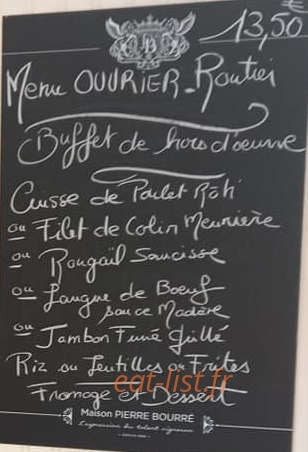 €
13,50
Menu OUVRIER-Routier
Buffet de hors d'oeuvre
Cuisse de Poulet Rôti
ou Filet de Colin Meunière
ou Rougail Saucisse
ou Langue de Boeuf
sauce Madère
ou Jambon Fumé Grillé
Riz ou Lentilles ou Frites
Fromage et Dessert
eat-list.fr
Maison PIERRE BOURRÉ
L'expression du talent vigneron